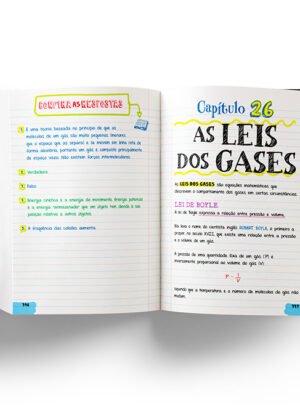 CONFIRA AS RESPOSTAS
1. É uma teoria baseada no princípio de que as
moléculas de um gás são muito pequenas (menores
que o espaço que as separa) e se movem em linha reta de
forma aleatória, portanto um gás é composto principalmente
de espaço vazio. Não existem forças intermoleculares.
2. Verdadeira
3. Falso
4. Energia cinética é a energia de movimento. Energia potencial
é a energia "armazenada" que um objeto tem devido à sua
posição relativa a outros objetos.
5. A frequência das colisões aumenta.
Capítulo 26
AS LEIS
DOS GASES
As LEIS DOS GASES são equações matemáticas que
descrevem o comportamento dos gases em certas circunstâncias.
LEI DE BOYLE
A lei de Boyle expressa a relação entre pressão e volume.
Ela leva o nome do cientista inglês ROBERT BOYLE, o primeiro a
propor, no século XVII, que existe uma relação entre a pressão
e o volume de um gás.
A pressão de uma quantidade fixa de um gás (P) é
inversamente proporcional ao volume do gás (V):
P ~ 1/V
supondo que a temperatura e o número de moléculas do gás não
mudam.